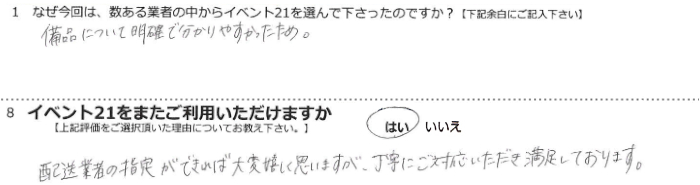 1 なぜ今回は、数ある業者の中からイベント21を選んで下さったのですか？【下記余白にご記入下さい】
備品について明確で分かりやすかったため。
8 イベント21をまたご利用いただけますか はい いいえ
【上記評価をご選択頂いた理由についてお教え下さい。】
配送業者の指定ができれば大変嬉しく思いますが、丁寧にご対応いただき満足しております。